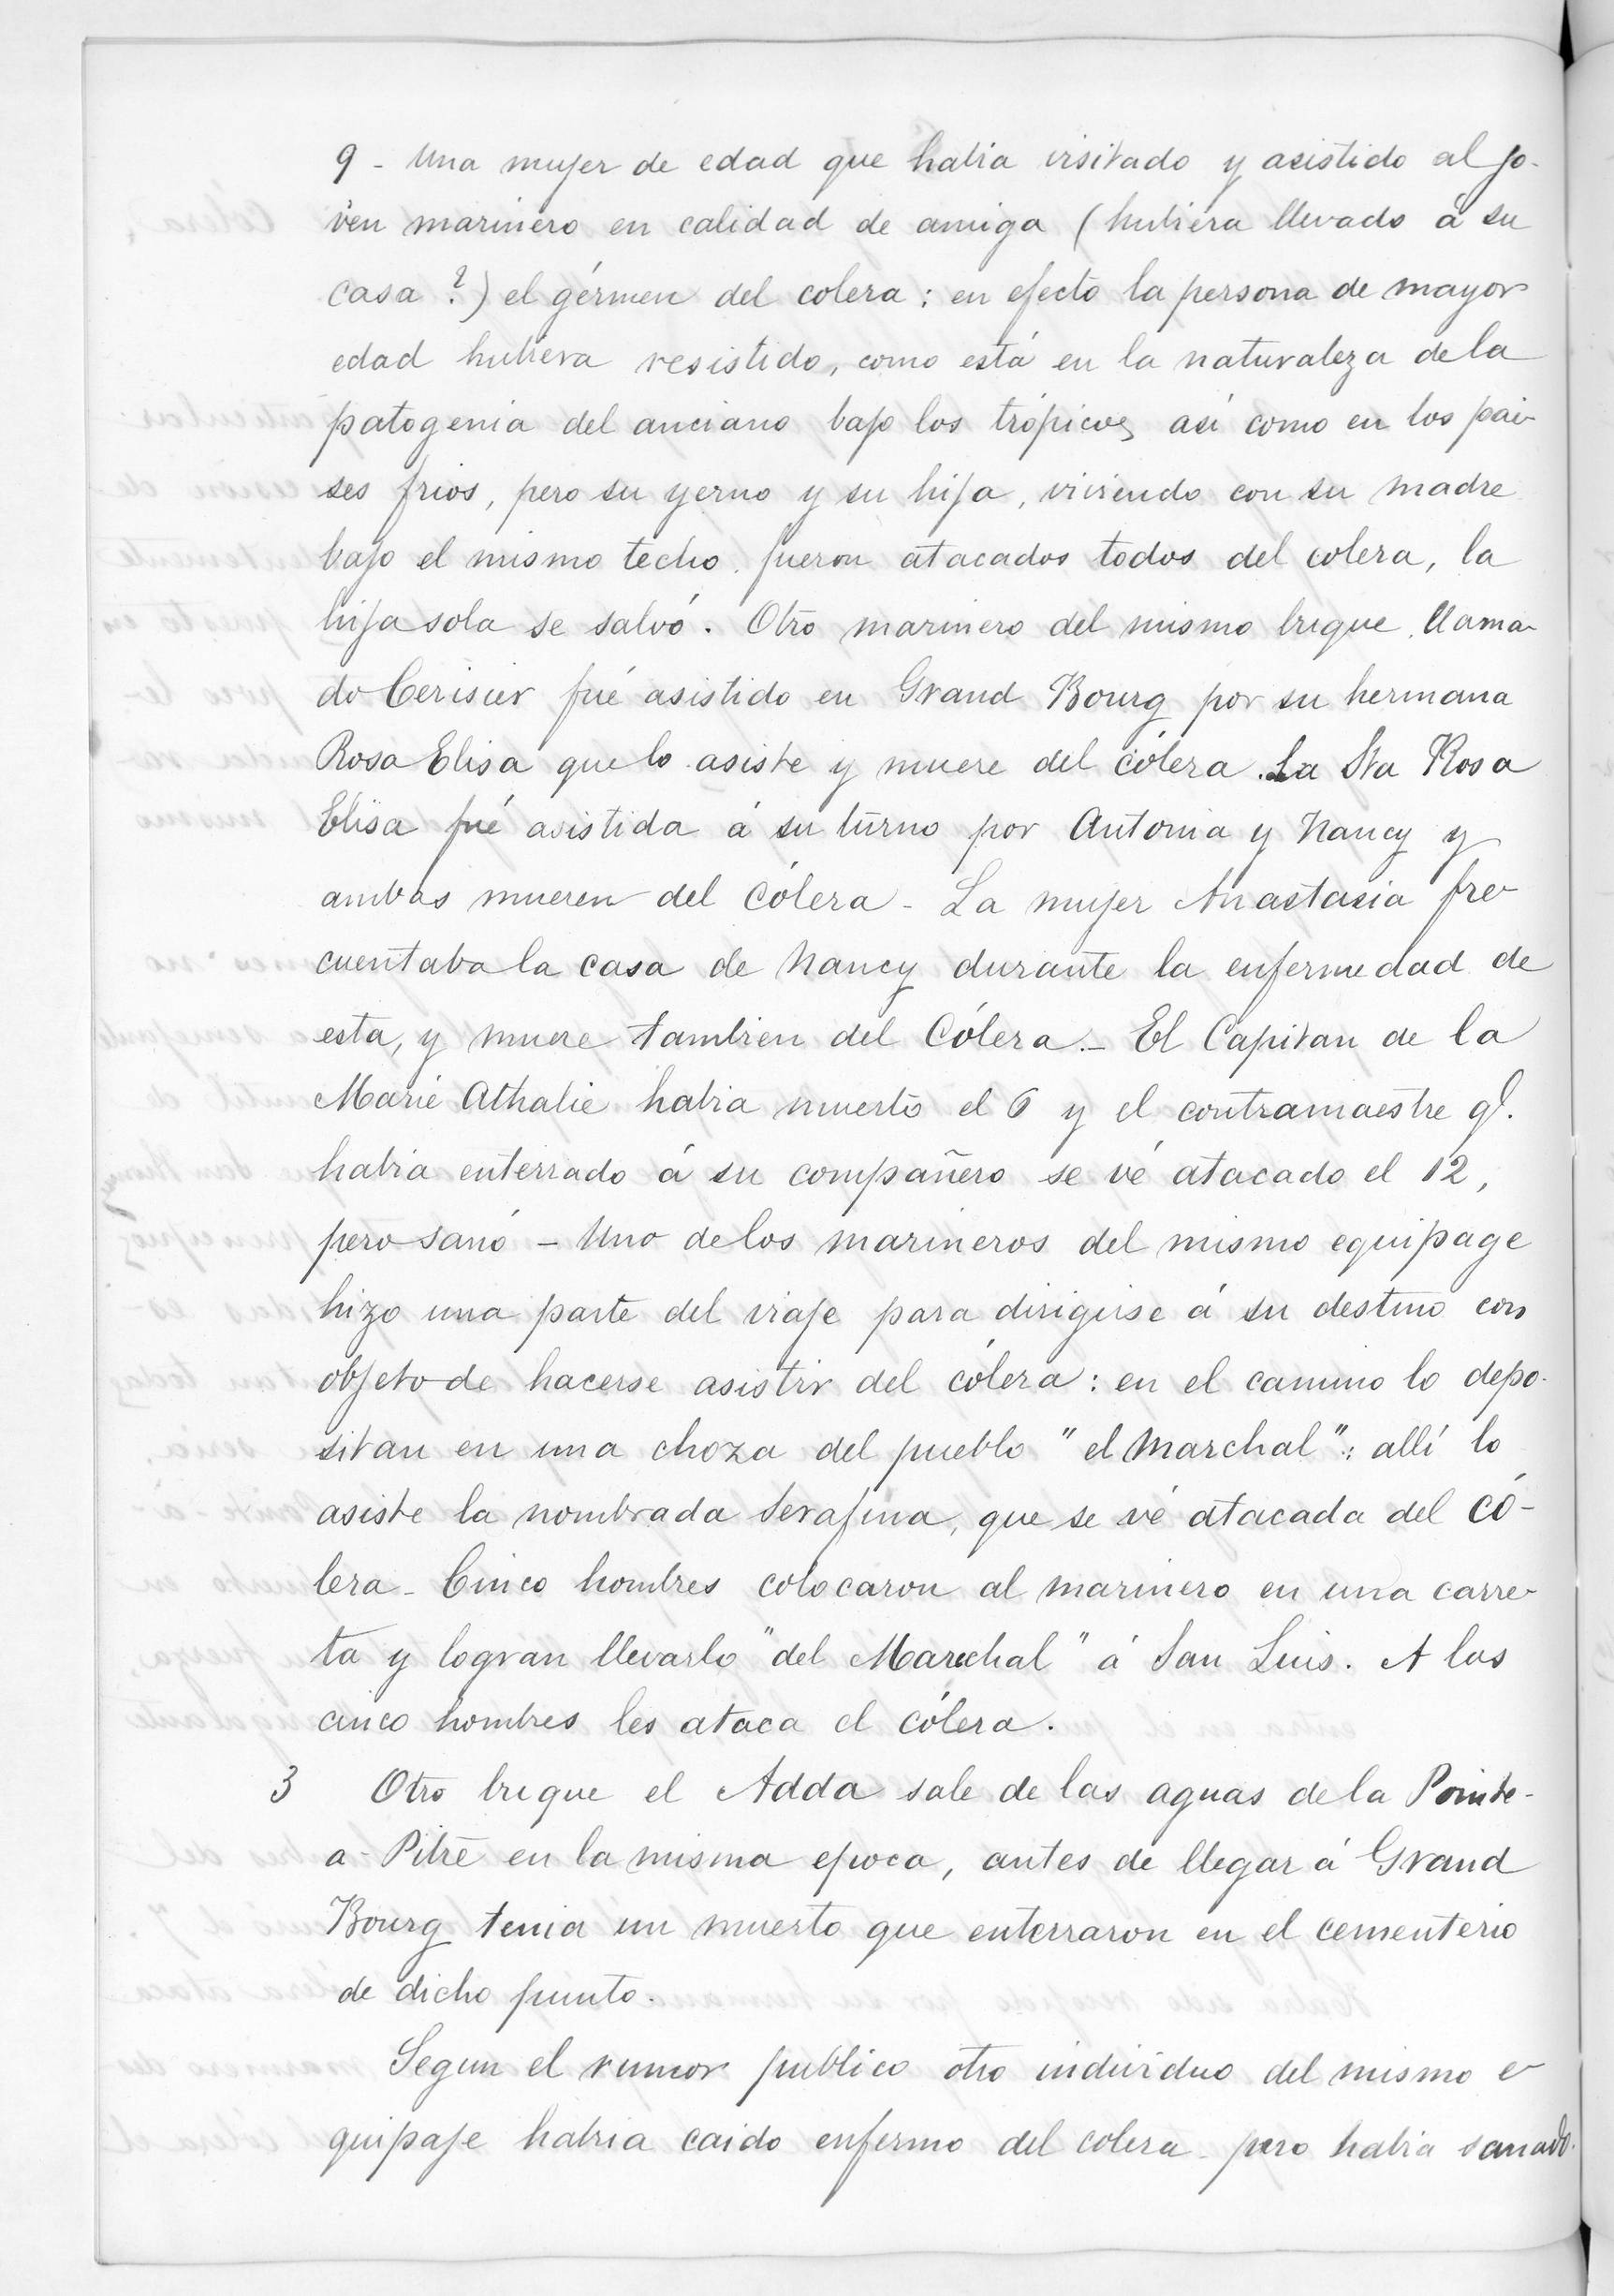 9 - Una mujer de edad que habia visitado y asistido al jo-
ven marinero en calidad de amiga (hubiera llevado á su
casa ?) el gérmen del colera : en efecto la persona de mayor
edad hubiera resistido, como está en la naturaleza de la
patogenia del anciano bajo los trópicos, asi como en los pai-
ses frios, pero su yerno y su hija, viviendo con su madre
bajo el mismo techo, fueron atacados todos del colera, la
hija sola se salvó. Otro marinero del mismo brique, llama-
do Cerisier fué asistido en Grand Bourg por su hermana
Rosa Elisa que lo asiste y muere del cólera. La Sta Rosa
Elisa fué asistida á su turno por Antonia y Nancy y
ambas mueren del Cólera - La mujer Anastasia fre-
cuentaba la casa de Nancy durante la enfermedad de
esta, y muere tambien del Cólera. - El Capitan de la
Marie Athalie habia muerto el 6 y el contramaestre q!.
habia enterrado á su compañero se vé atacado el 12,
pero sanó - Uno de los marineros del mismo equipage
hizo una parte del viaje para dirigirse á su destino con
objeto de hacerse asistir del cólera : en el camino lo depo-
sitan en una choza del pueblo "el Marchal" : allí lo
asiste la nombrada Serafina, que se vé atacada del Có-
lera - Cinco hombres colocaron al marinero en una carre-
ta y logran llevarlo "del Marechal" á San Luis. A los
cinco hombres les ataca el cólera.
3 Otro brique el Adda sale de las aguas de la Pointe-
a-Pitre en la misma epoca, antes de llegar á Grand
Bourg tenia un muerto que enterraron en el cementerio
de dicho punto.
Segun el rumor publico otro individuo del mismo e-
quipaje habria caido enfermo del colera - pero habia sanado.